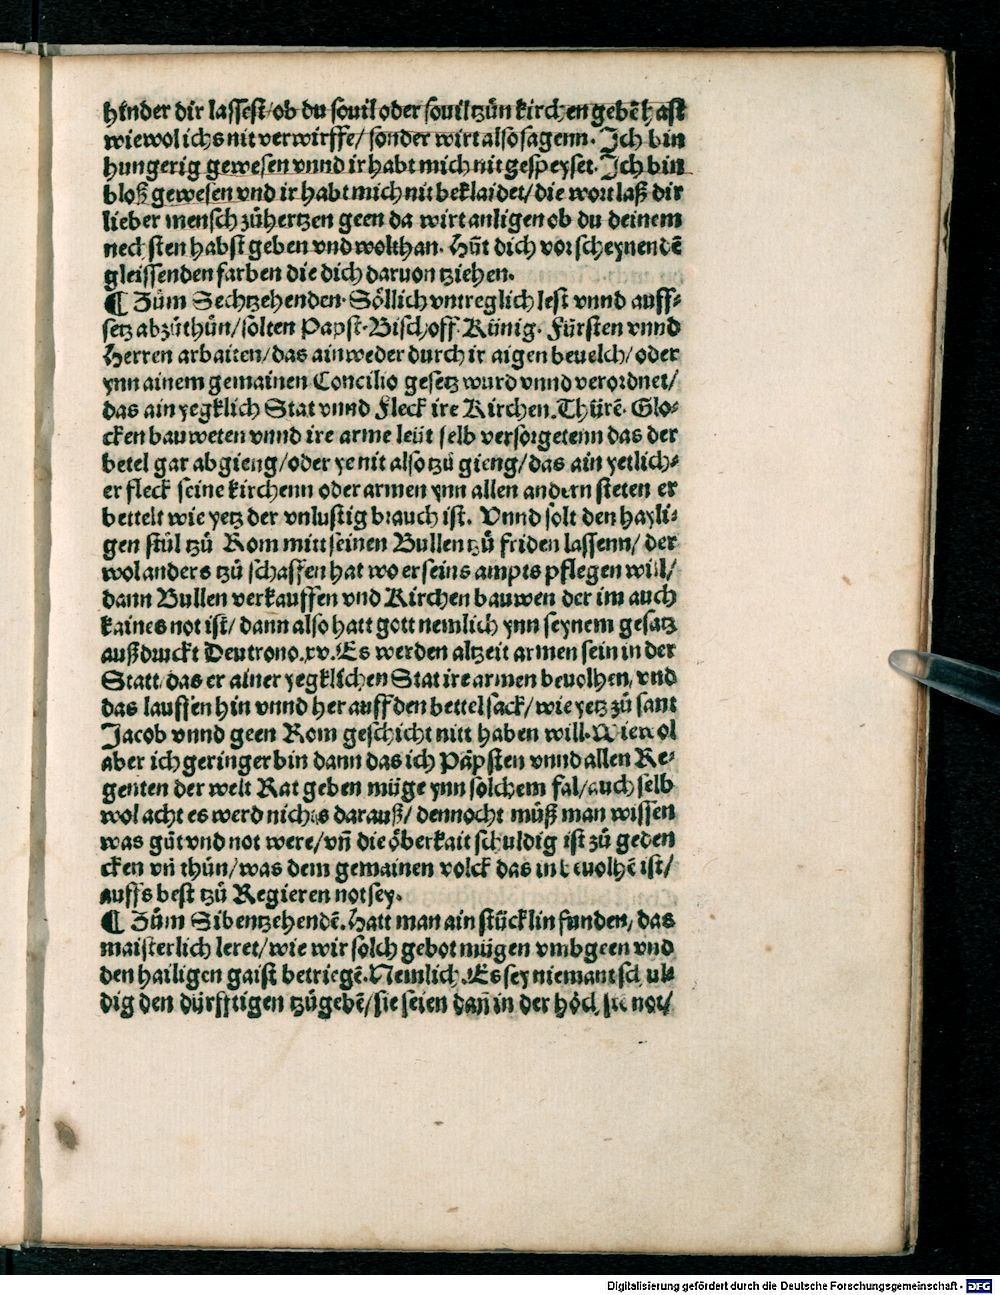 hinder dir lassest/ob du souil oder souil tzůn kirchen gebē hast
wiewol ichs nit verwirffe/sonder wirt also sagenn. Ich bin
hungerig gewesen vnnd ir habt mich nit gespeyset. Ich bin
bloß gewesen vnd ir habt mich nit beklaidet/die wort laß dir
lieber mensch zůhertzen geen da wirt anligen ob du deinem
nechsten habst geben vnd wolthan. Hůt dich vor scheynendē
gleissenden farben die dich daruon tziehen.
¶ Zům Sechtzehenden. Söllich vntreglich lest vnnd auff⸗
setz abzůthůn/solten Papst. Bischoff. Künig. Fürsten vnnd
Herren arbaiten/das ainweder durch ir aigen beuelch/oder
ynn ainem gemainen Concilio gesetz wurd vnnd verordnet/
das ain yegklich Stat vnnd Fleck ire Kirchen. Thürē. Glo⸗
cken bauweten vnnd ire arme leüt selb versorgetenn das der
betel gar abgieng/oder ye nit also tzů gieng/das ain yetlich⸗
er fleck seine kirchenn oder armen ynn allen andern steten er
bettelt wie yetz der vnlustig brauch ist. Vnnd solt den hayli⸗
gen stůl tzů Rom mitt seinen Bullen tzů friden lassenn/der
wol anders tzů schaffen hat wo er seins ampts pflegen will/
dann Bullen verkauffen vnd Kirchen bauwen der im auch
kaines not ist/dann also hatt gott nemlich ynn seynem gesatz
außdruckt Deutrono.xv. Es werden altzeit armen sein in der
Statt das er ainer yegklichen Stat ire armen beuolhen, vnd
das lauffen hin vnnd her auff den bettelsack/wie yetz zů sant
Jacob vnnd geen Rom geschicht nitt haben will. Wiewol
aber ich geringer bin dann das ich Päpsten vnnd allen Re⸗
genten der welt Rat geben müge ynn solchem fal/auch selb
wol acht es werd nichts darauß/dennocht můß man wissen
was gůt vnd not were/vñ die öberkait schuldig ist zů geden
cken vñ thůn/was dem gemainen volck das in beuolhē ist/
auffs best tzů Regieren not sey.
¶ Zům Sibentzehendē. Hatt man ain stücklin funden/das
maisterlich leret/wie wir solch gebot mügen vmbgeen vnd
den hailigen gaist betriegē. Nemlich. Es sey niemant schul⸗
dig den dürfftigen tzůgebē/sie seien dañ in der höchste not/
Digitalisierung gefördert durch die Deutsche Forschungsgemeinschaft - DFG